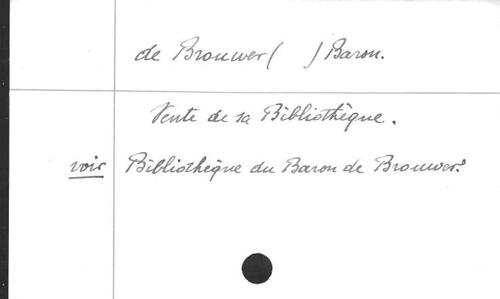 de Brouwer (      ) Baron.
Vente de sa Bibliothèque.
voir Bibliothèque du Baron de Brouwer.